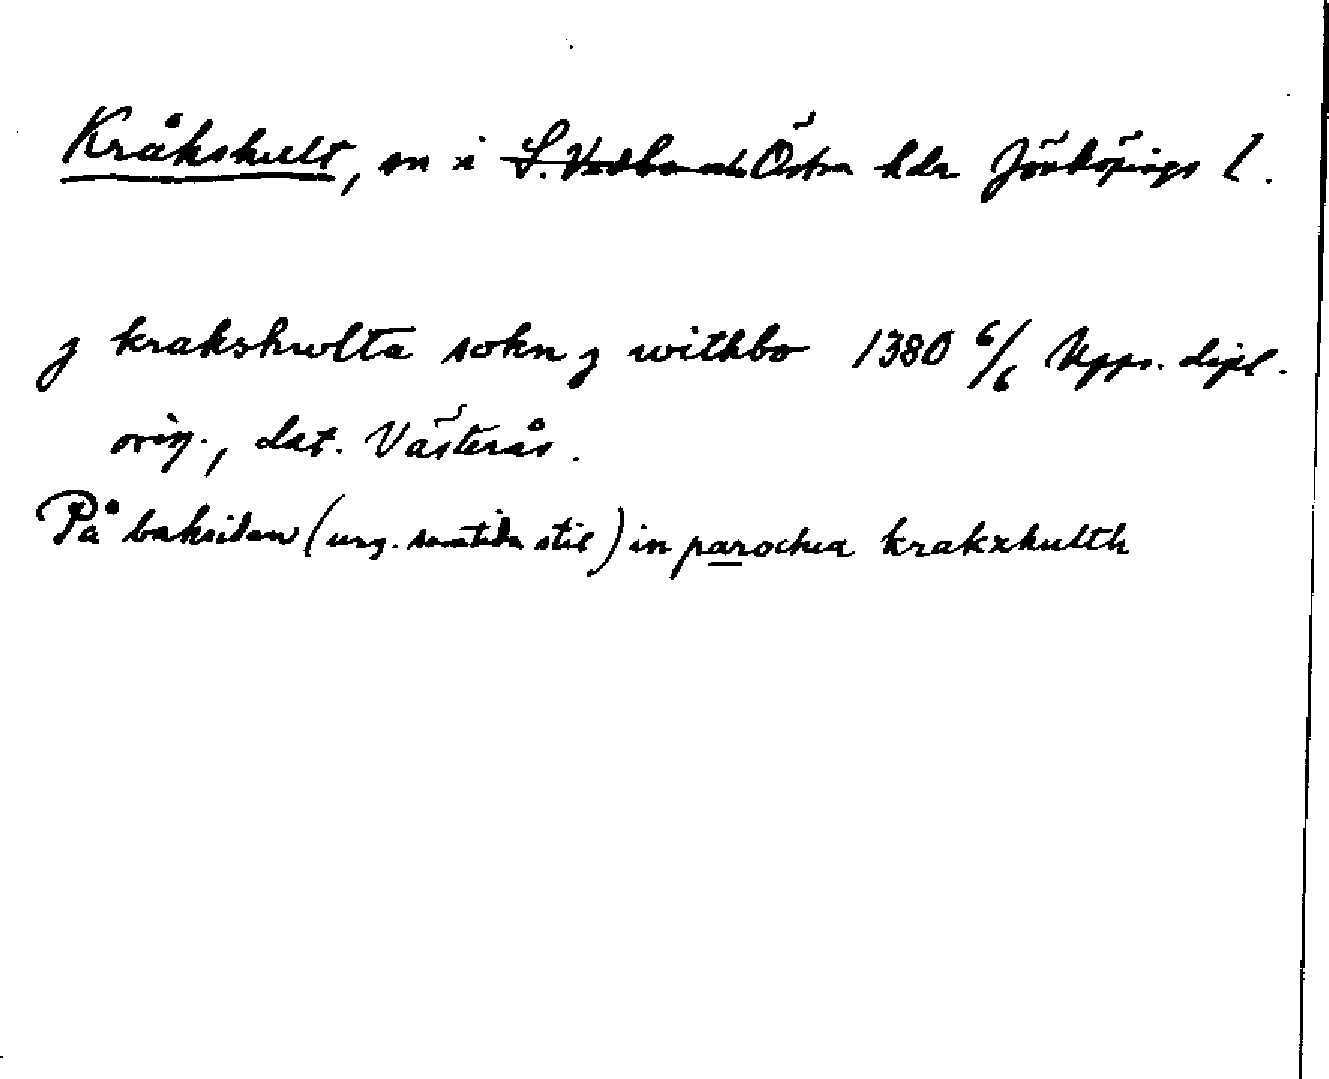 Kråkshult, sn i ~~S. Vedbo och~~ Östra hdr Jönköpings l.
j krakshwlta sokn j withbo 1380 6/6 Upps. dipl.
orig., dat. Västerås.
På baksidan (ung. samtida stil) in parochia krakxhulth